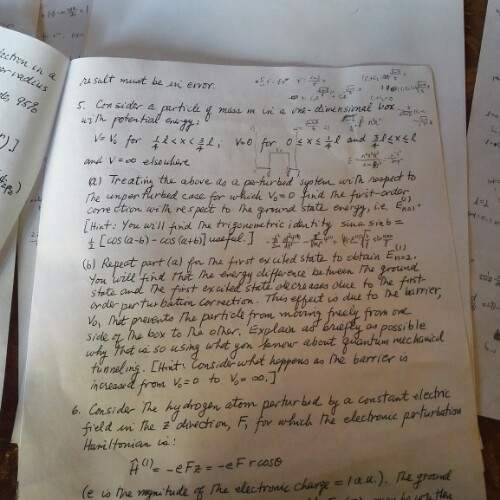 ection in a
radius
95%
result must be in error.
5. Consider a particle of mass m in a one-dimensional box
with potential energy:
V=V₀ for 1/4 l < x < 3/4 l, V=0 for 0 ≤ x ≤ 1/4 l and 3/4 l ≤ x ≤ l
and V=∞ elsewhere
(a) Treating the above as a perturbed system with respect to
the unperturbed case for which V₀=0 find the first-order
correction with respect to the ground state energy, i.e. E_{n=1}^{(1)}.
[Hint: You will find the trigonometric identity sin a sin b =
1/2 [cos(a-b) - cos(a+b)] useful.]
(b) Repeat part (a) for the first excited state to obtain E_{n=2}^{(1)}.
You will find that the energy difference between the ground
state and the first excited state decreases due to the first-
order perturbation correction. This effect is due to the barrier,
V₀, that prevents the particle from moving freely from one
side of the box to the other. Explain as briefly as possible
why that is so using what you know about quantum mechanical
tunneling. [Hint: Consider what happens as the barrier is
increased from V₀=0 to V₀=∞.]
6. Consider the hydrogen atom perturbed by a constant electric
field in the z direction, F, for which the electronic perturbation
Hamiltonian is:
Ĥ^{(1)} = -eFz = -eF r cosθ
(e is the magnitude of the electronic charge = 1 a.u.). The ground